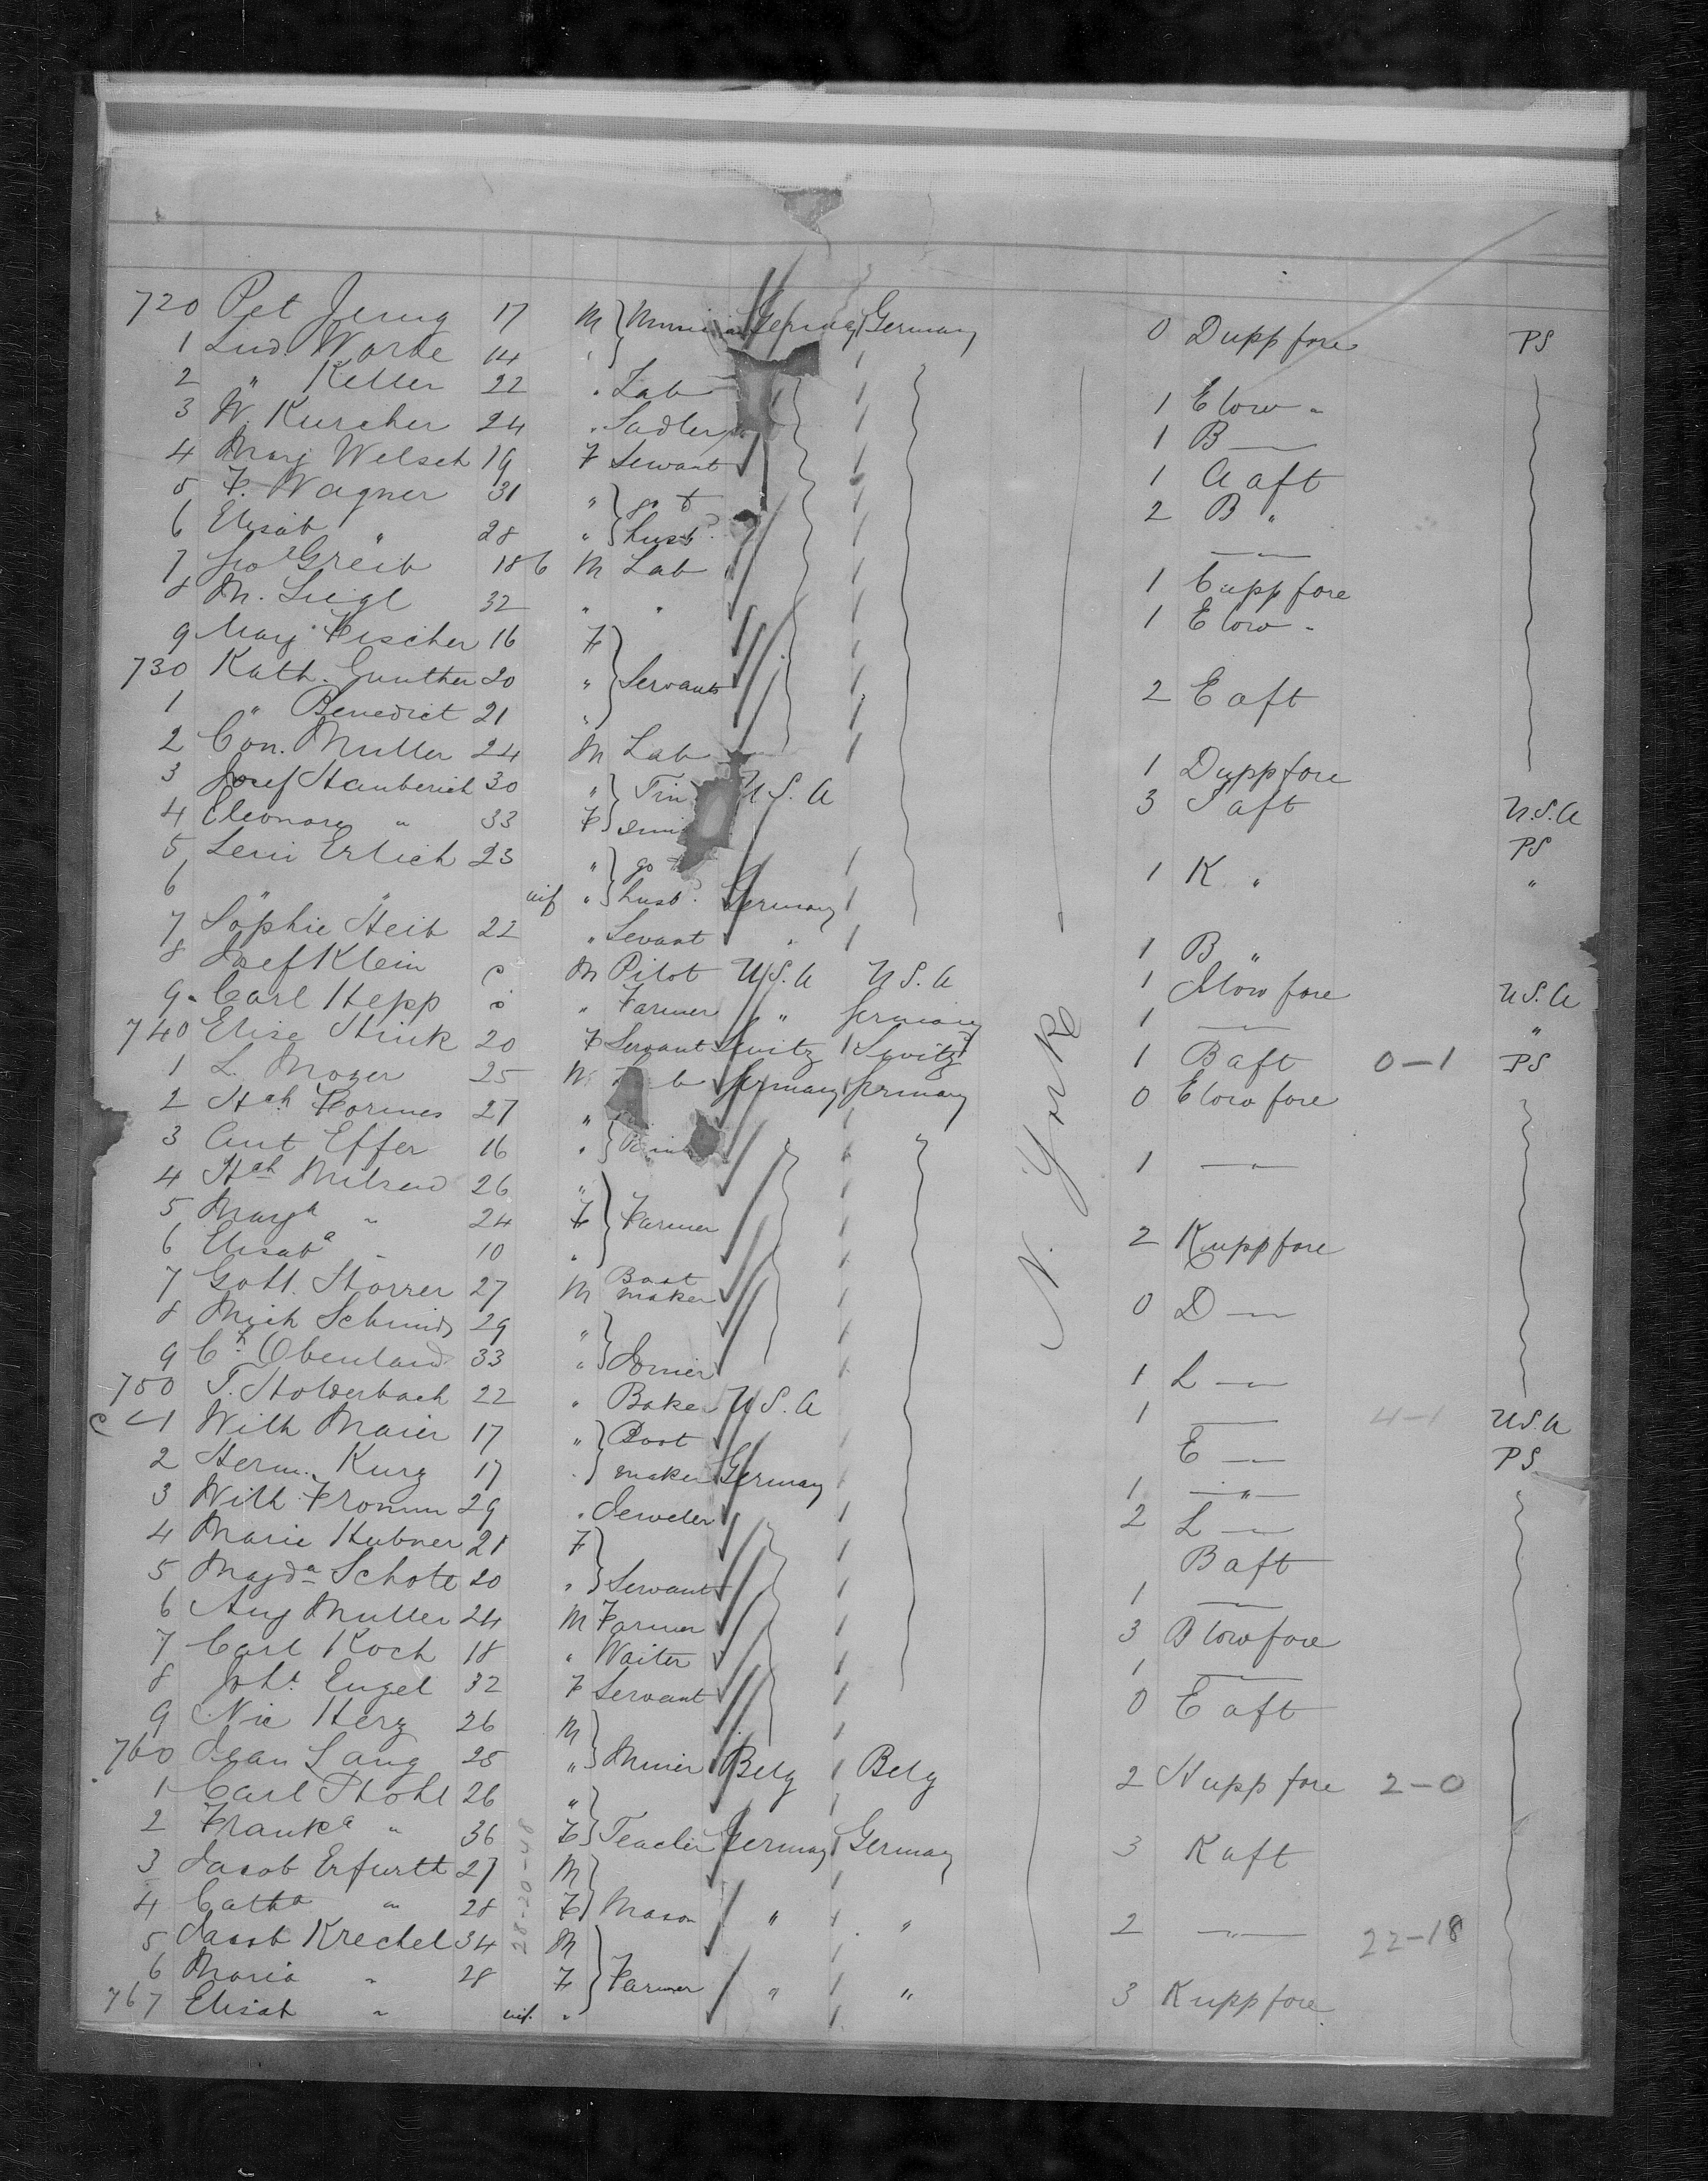 720 Pet Jerug 17 M Musician Germany Germany 0 D upp fore PS
1 Lud. Worde 14 "
2 " Keller 22 " Lab 1 E low "
3 W. Kurcher 24 " Sadler 1 B —
4 Marg Welsch 19 F Servant 1 A aft
5 F. Wagner 31 " go t 2 B "
6 Elisab " 28 " husbd —"—
7 Greib 18 6 M Lab 1 C upp fore
8 M. Liegl 32 " " 1 E low "
9 Marg Fischer 16 F
730 Kath. Gunther 20 " Servants 2 E aft
1 " Benedict 21 "
2 Con. Muller 24 M Lab 1 D upp fore
3 Josef Stauberich 30 " Tin U.S.A 3 J aft U.S.A
4 Eleonora " 33 F smi PS
5 Leni Erlich 23 " go t 1 K " "
6 " " inf " husbd Germany
7 Sophie Heib 22 " Servant " 1 B "
8 Josef Klein c M Pilot U.S.A U.S.A 1 low fore U.S.A
9 Carl Hepp c " Farmer " Germany 1 —"— "
740 Elise Stink 20 F Servant Switz Switz 1 B aft 0–1 PS
1 L. Mozer 25 M Germany Germany 0 E low fore
2 Hch Formes 27 "
3 Ant Effer 16 " 1 —"—
4 Hch Milread 26 "
5 Marga " 24 F Farmer
6 Elisaba " 10 " 2 K upp fore
7 Gott. Storrer 27 M Boot maker 0 D —"—
8 Mich Schmid 29 "
9 Ch Obenland 33 " Joiner 1 L —"—
750 T. Stolderbach 22 " Baker U.S.A 1 —"— 4–1 U.S.A
1 Wilh Maier 17 " Boot E —"— PS
2 Herm. Kurz 17 " maker Germany
3 Wilh Fromm 29 " Jeweler 1 —"—
4 Marie Hubner 21 F 2 L —"—
5 Magda Schott 20 " Servants B aft
6 Aug Muller 24 M Farmer 1 —"—
7 Carl Koch 18 " Waiter 3 D low fore
8 Joha Engel 32 F Servant 1 —"—
9 Nic Herz 26 M 0 E aft
760 Jean Lang 25 " Miner Belg Belg 2 N upp fore 2–0
1 Carl Stohl 26 "
2 Franka " 36 F Teacher Germany Germany 3 K aft
3 Jacob Erfurtt 27 M
4 Catha " 28 F Mason " " 2 —"—
5 Jacob Krechel 34 M 22–18
6 Maria " 28 F Farmer " " 3 K upp fore
767 Elisab " inf. "
N. York
28-20-48